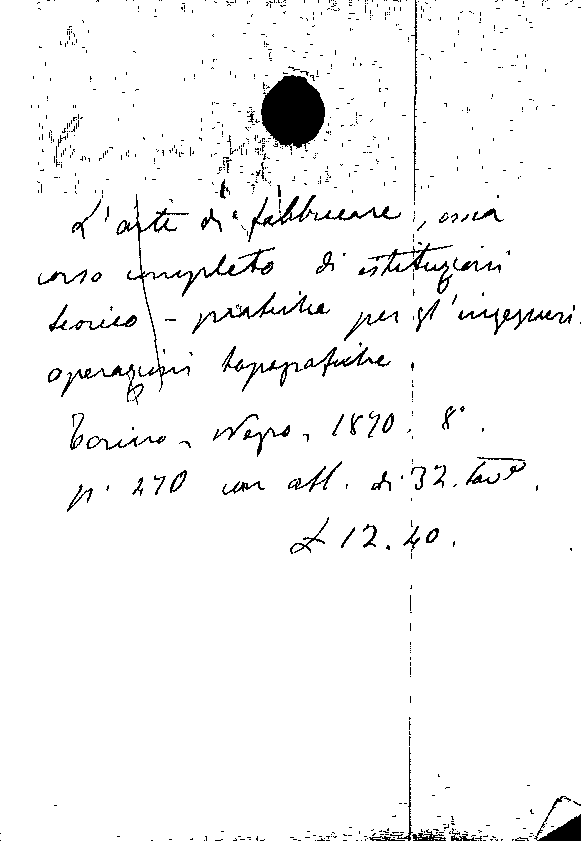 L'arte di fabbricare, ossia
corso completo di istituzioni
teorico-pratiche per gl'ingegneri.
operazioni topografiche.
Torino, Negro, 1870. 8°.
p. 270 con atl. di 32. tavᵉ.
£ 12.40.